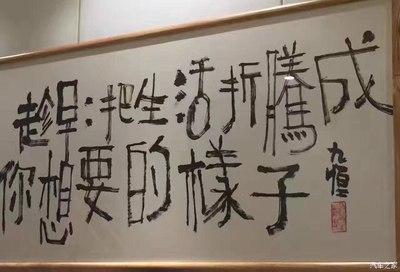 趁早:把生活折騰成
你想要的樣子
九恒
汽车之家